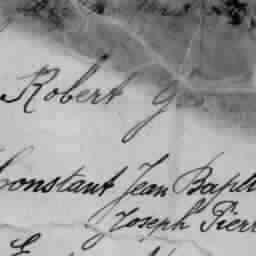 Robert G
Constant Jean Bapti
Joseph Pierr